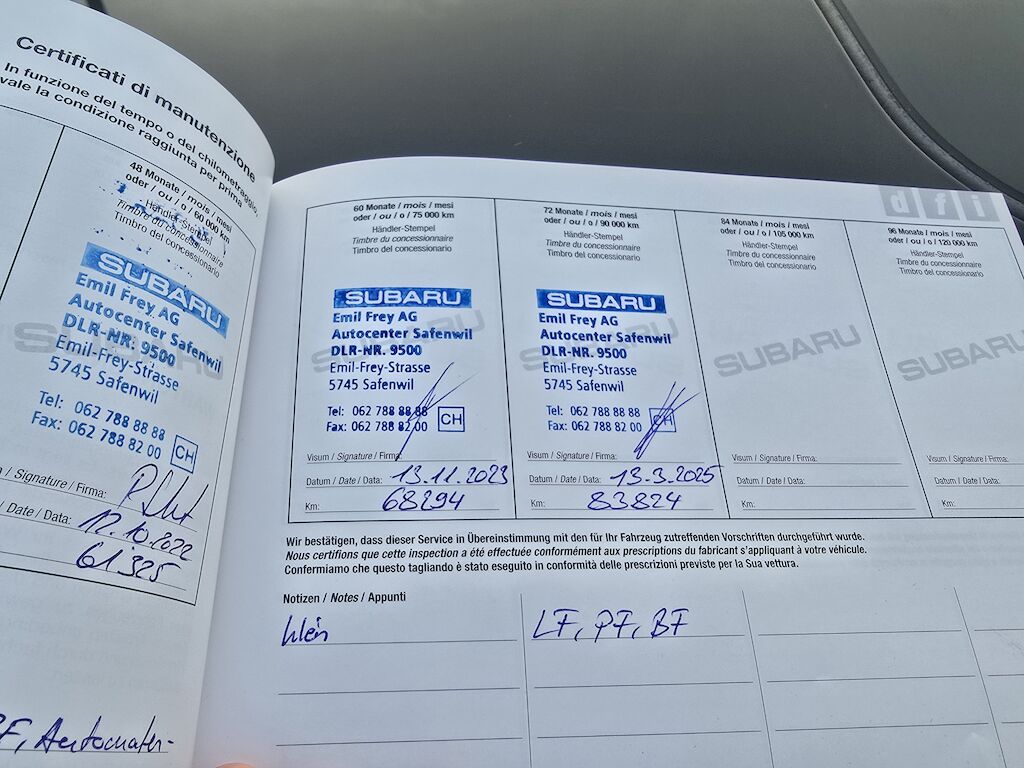 Certificati di manutenzione
In funzione del tempo o del chilometraggio,
vale la condizione raggiunta per prima
48 Monate / mois / mesi
oder / ou / o / 60 000 km
Händler-Stempel
Timbre du concessionnaire
Timbro del concessionario
SUBARU
Emil Frey AG
Autocenter Safenwil
DLR-NR. 9500
Emil-Frey-Strasse
5745 Safenwil
Tel: 062 788 88 88
Fax: 062 788 82 00
CH
/ Signature / Firma:
/ Date / Data: 12.10.2022
61'325
F, Automaten-
dfi
60 Monate / mois / mesi
oder / ou / o / 75 000 km
Händler-Stempel
Timbre du concessionnaire
Timbro del concessionario
SUBARU
Emil Frey AG
Autocenter Safenwil
DLR-NR. 9500
Emil-Frey-Strasse
5745 Safenwil
Tel: 062 788 88 88
Fax: 062 788 82 00
CH
Visum / Signature / Firma:
Datum / Date / Data: 13.11.2023
Km: 68294
72 Monate / mois / mesi
oder / ou / o / 90 000 km
Händler-Stempel
Timbre du concessionnaire
Timbro del concessionario
SUBARU
Emil Frey AG
Autocenter Safenwil
DLR-NR. 9500
Emil-Frey-Strasse
5745 Safenwil
Tel: 062 788 88 88
Fax: 062 788 82 00
CH
Visum / Signature / Firma:
Datum / Date / Data: 13.3.2025
Km: 83824
84 Monate / mois / mesi
oder / ou / o / 105 000 km
Händler-Stempel
Timbre du concessionnaire
Timbro del concessionario
SUBARU
Visum / Signature / Firma:
Datum / Date / Data:
Km:
96 Monate / mois / mesi
oder / ou / o / 120 000 km
Händler-Stempel
Timbre du concessionnaire
Timbro del concessionario
SUBARU
Visum / Signature / Firma:
Datum / Date / Data:
Km:
Wir bestätigen, dass dieser Service in Übereinstimmung mit den für Ihr Fahrzeug zutreffenden Vorschriften durchgeführt wurde.
Nous certifions que cette inspection a été effectuée conformément aux prescriptions du fabricant s'appliquant à votre véhicule.
Confermiamo che questo tagliando è stato eseguito in conformità delle prescrizioni previste per la Sua vettura.
Notizen / Notes / Appunti
klein
LF, PF, BF